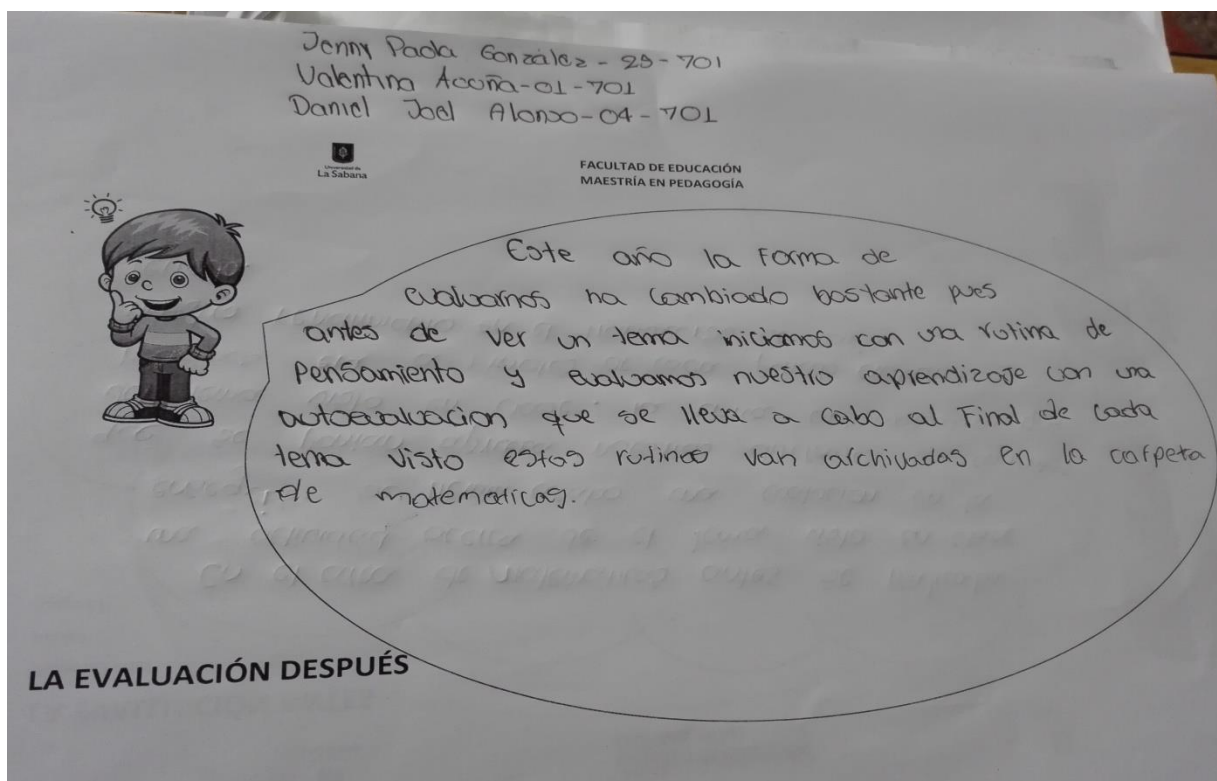 Jenny Paola González - 29 - 701
Valentina Acuña - 01 - 701
Daniel Joel Alonso - 04 - 701
Universidad de
La Sabana
FACULTAD DE EDUCACIÓN
MAESTRÍA EN PEDAGOGÍA
Este año la forma de
evaluarnos ha cambiado bastante pues
antes de ver un tema iniciamos con una rutina de
pensamiento y evaluamos nuestro aprendizaje con una
autoevaluacion que se lleva a cabo al final de cada
tema visto estas rutinas van archivadas en la carpeta
de matematicas.
LA EVALUACIÓN DESPUÉS